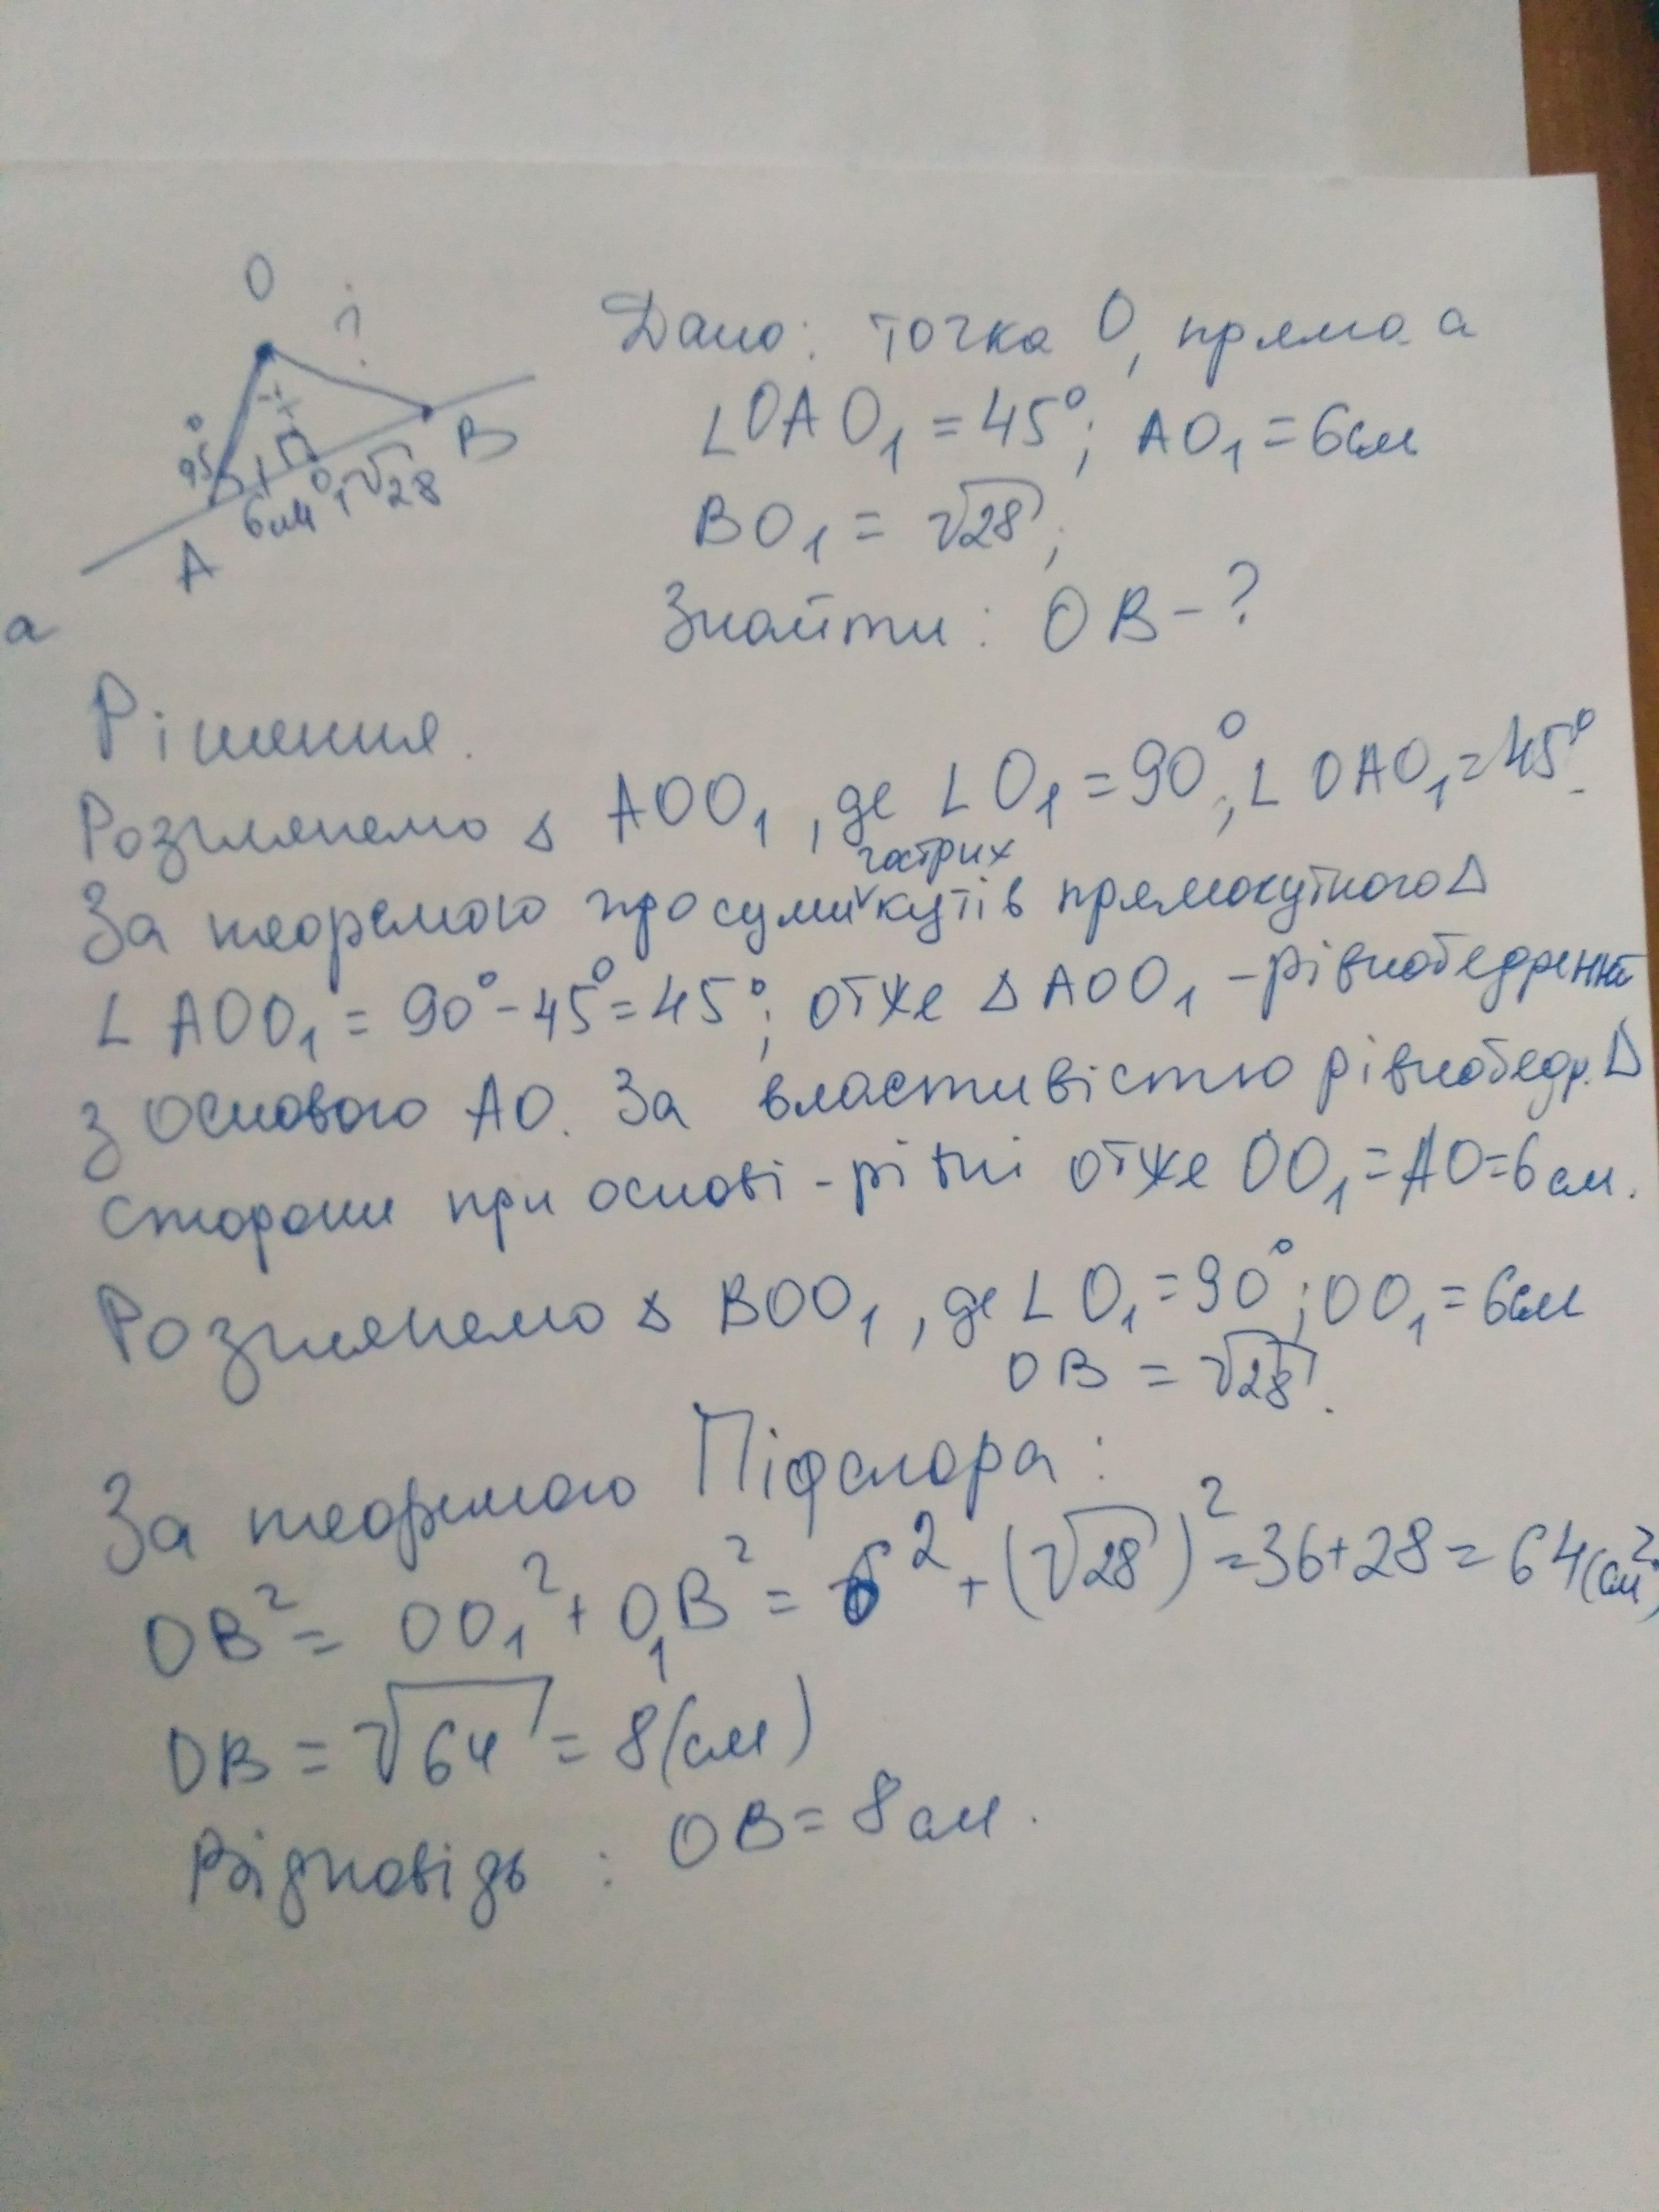 O ?
45°
6см O₁ √28 B
A
a
Дано: точка O, пряма a
∠OAO₁ = 45°; AO₁ = 6см
BO₁ = √28;
Знайти: OB - ?
Рішення.
Розглянемо △ AOO₁, де ∠O₁ = 90°; ∠OAO₁ = 45°.
За теоремою про суму гострих кутів прямокутного △
∠AOO₁ = 90° - 45° = 45°; отже △AOO₁ - рівнобедрений
з основою AO. За властивістю рівнобедр. △
сторони при основі - рівні отже OO₁ = AO = 6 см.
Розглянемо △ BOO₁, де ∠O₁ = 90°; OO₁ = 6см
OB = √28.
За теоремою Піфагора:
OB² = OO₁² + O₁B² = 6² + (√28)² = 36 + 28 = 64 (см²)
OB = √64 = 8 (см)
Відповідь: OB = 8 см.